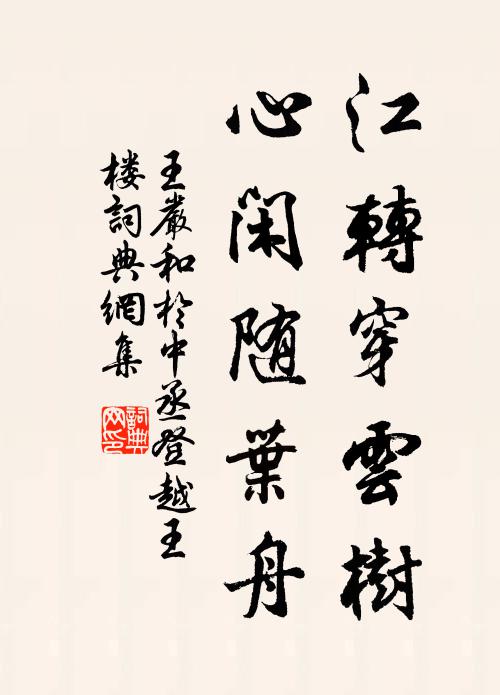 江轉穿雲樹
心閑随葉舟
王嚴和於中丞登越王
楼詞典網集
詞典
网印